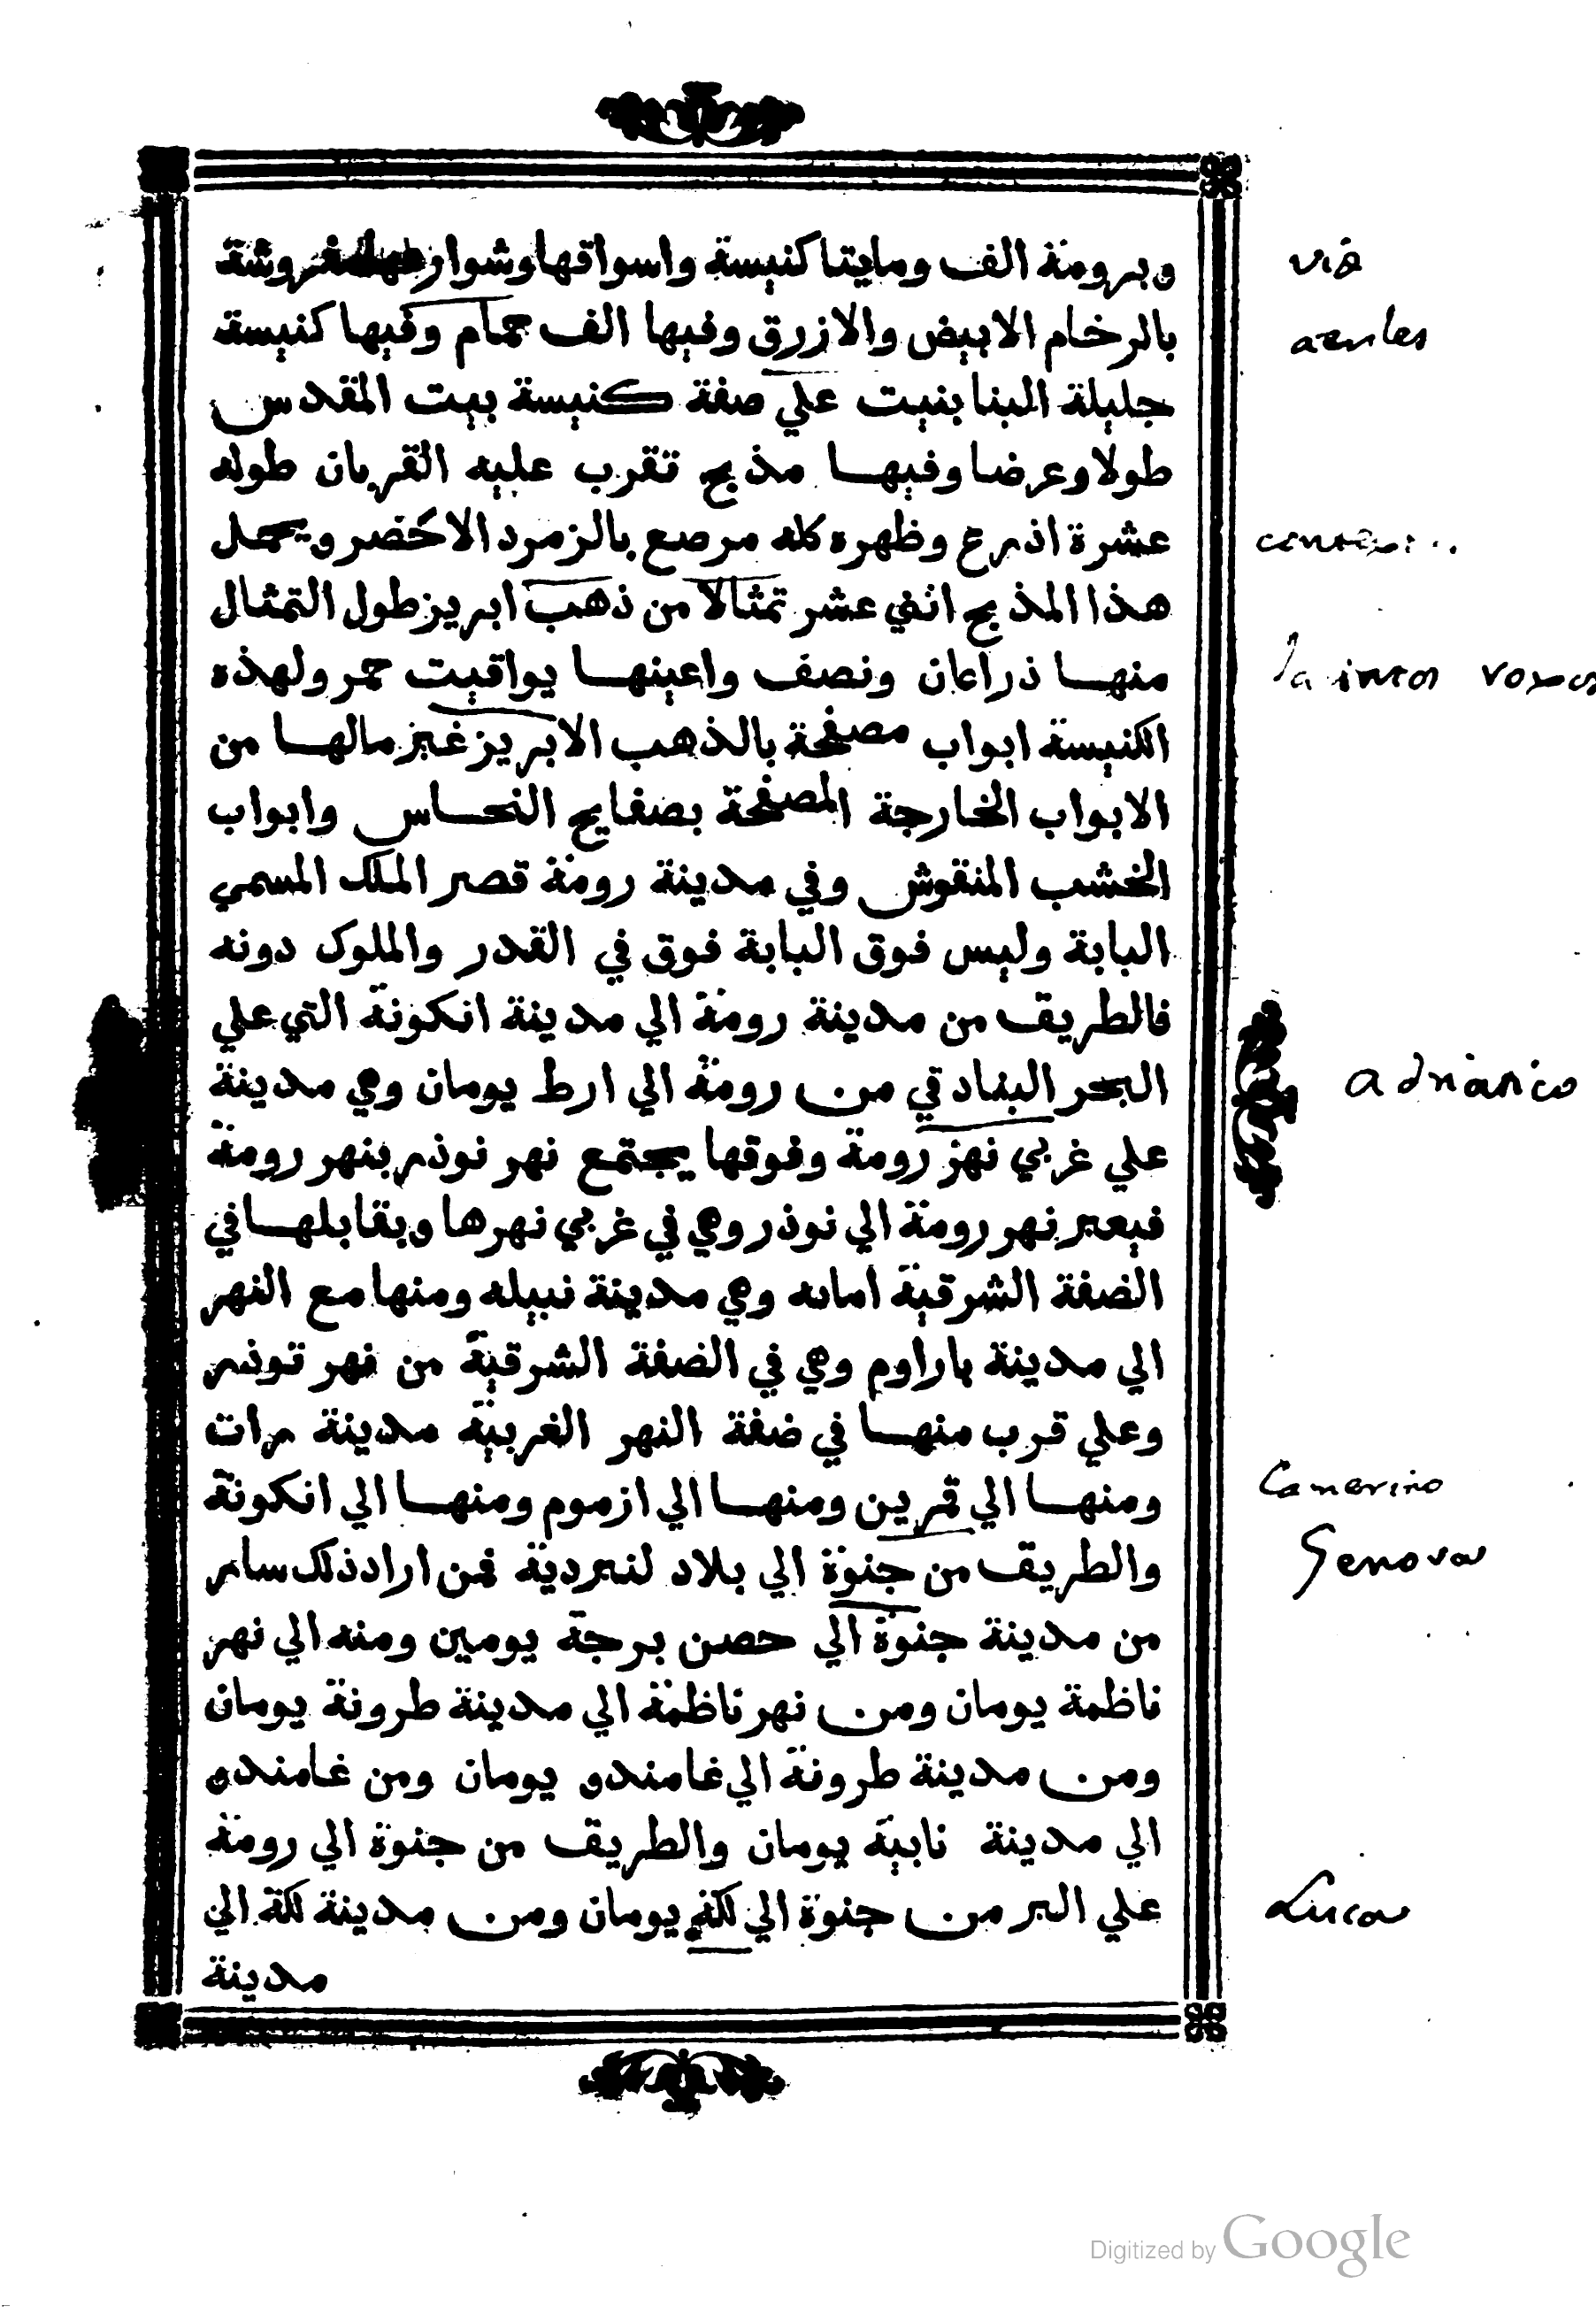 وبرومة الف ومايتا كنيسة واسواقها وشوارعها مفروشة
بالرخام الابيض والازرق وفيها الف حمام وفيها كنيسة
جليلة البنا بنيت علي صفة كنيسة بيت المقدس
طولا وعرضا وفيها مذبح تقرب عليه القربان طوله
عشرة اذرع وظهره كله مرصع بالزمرد الاخضر ويحمل
هذا المذبح اثني عشر تمثالا من ذهب ابريز طول التمثال
منها ذراعان ونصف واعينها يواقيت حمر ولهذه
الكنيسة ابواب مصفحة بالذهب الابريز غير مالها من
الابواب الخارجة المصفحة بصفايح النحاس وابواب
الخشب المنقوش وفي مدينة رومة قصر الملك المسمي
البابة وليس فوق البابة فوق في القدر والملوك دونه
فالطريق من مدينة رومة الي مدينة انكونة التي علي
البحر البنادقي من رومة الي ارط يومان وهي مدينة
علي غربي نهر رومة وفوقها يجتمع نهر نوذر بنهر رومة
فيعبر نهر رومة الي نوذر وهي في غربي نهرها ويقابلها في
الضفة الشرقية امانه وهي مدينة نبيله ومنها مع النهر
الي مدينة باراوم وهي في الضفة الشرقية من نهر تونر
وعلي قرب منها في ضفة النهر الغربية مدينة مرات
ومنها الي قمرين ومنها الي ازموم ومنها الي انكونة
والطريق من جنوة الي بلاد لنبردية فمن اراد ذلك سار
من مدينة جنوة الي حصن برجة يومين ومنه الي نهر
ناظمة يومان ومن نهر ناظمة الي مدينة طرونة يومان
ومن مدينة طرونة الي غامندو يومان ومن غامندو
الي مدينة نابية يومان والطريق من جنوة الي رومة
علي البر من جنوة الي لكة يومان ومن مدينة لكة الي
مدينة
via
azules
Jacintos roxos
adriatico
Camerino
Genova
Luca
Digitized by Google